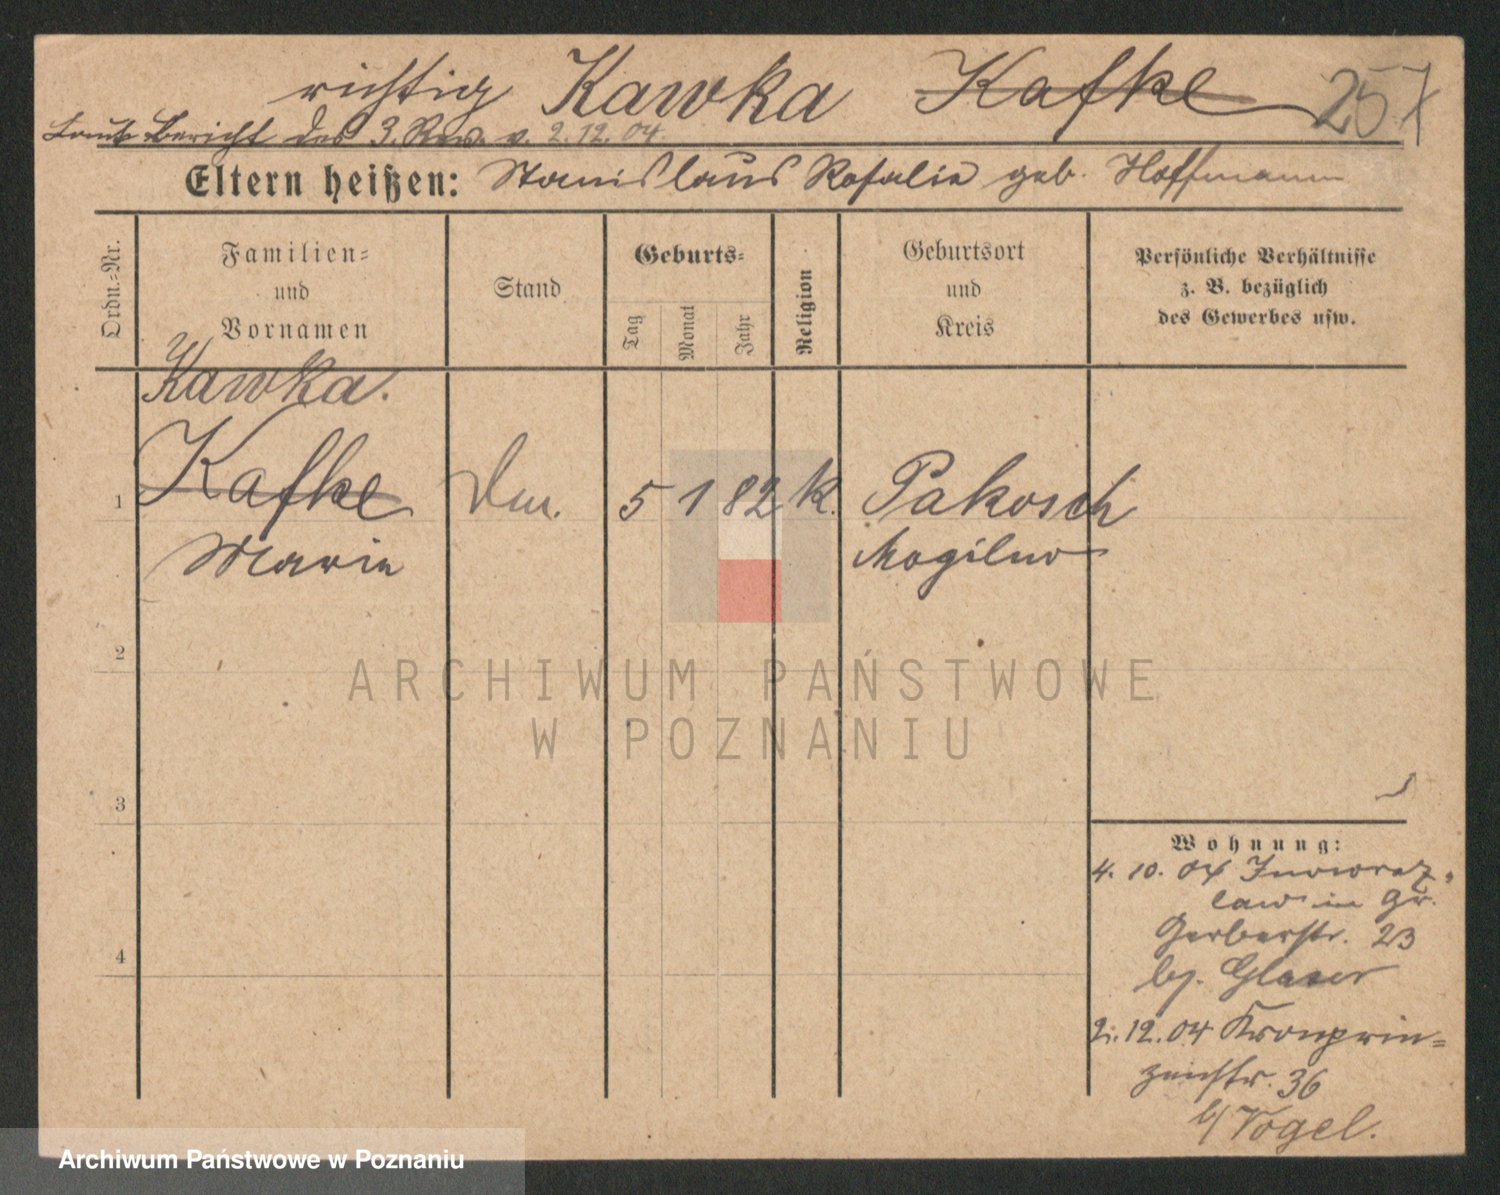 richtig Kawka Kafke 257
Laut Bericht des 3. Rev. v. 2.12.04.
Eltern heißen: Stanislaus Rosalie geb. Hoffmann
Ordn.-Nr.
Familien-
und
Vornamen
Stand
Geburts-
Tag
Monat
Jahr
Religion
Geburtsort
und
Kreis
Persönliche Verhältnisse
z. B. bezüglich
des Gewerbes usw.
Kawka.
1 Kafke 5 1 82 k. Pakosch
Marie Mogilno
2
3
4
ARCHIWUM PAŃSTWOWE
W POZNANIU
Wohnung:
4. 10. 04 Inowraz-
law in Gr.
Gerberstr. 23
bj. Glaser
2.12.04 Kronprin=
zenstr. 36
b/ Vogel.
Archiwum Państwowe w Poznaniu